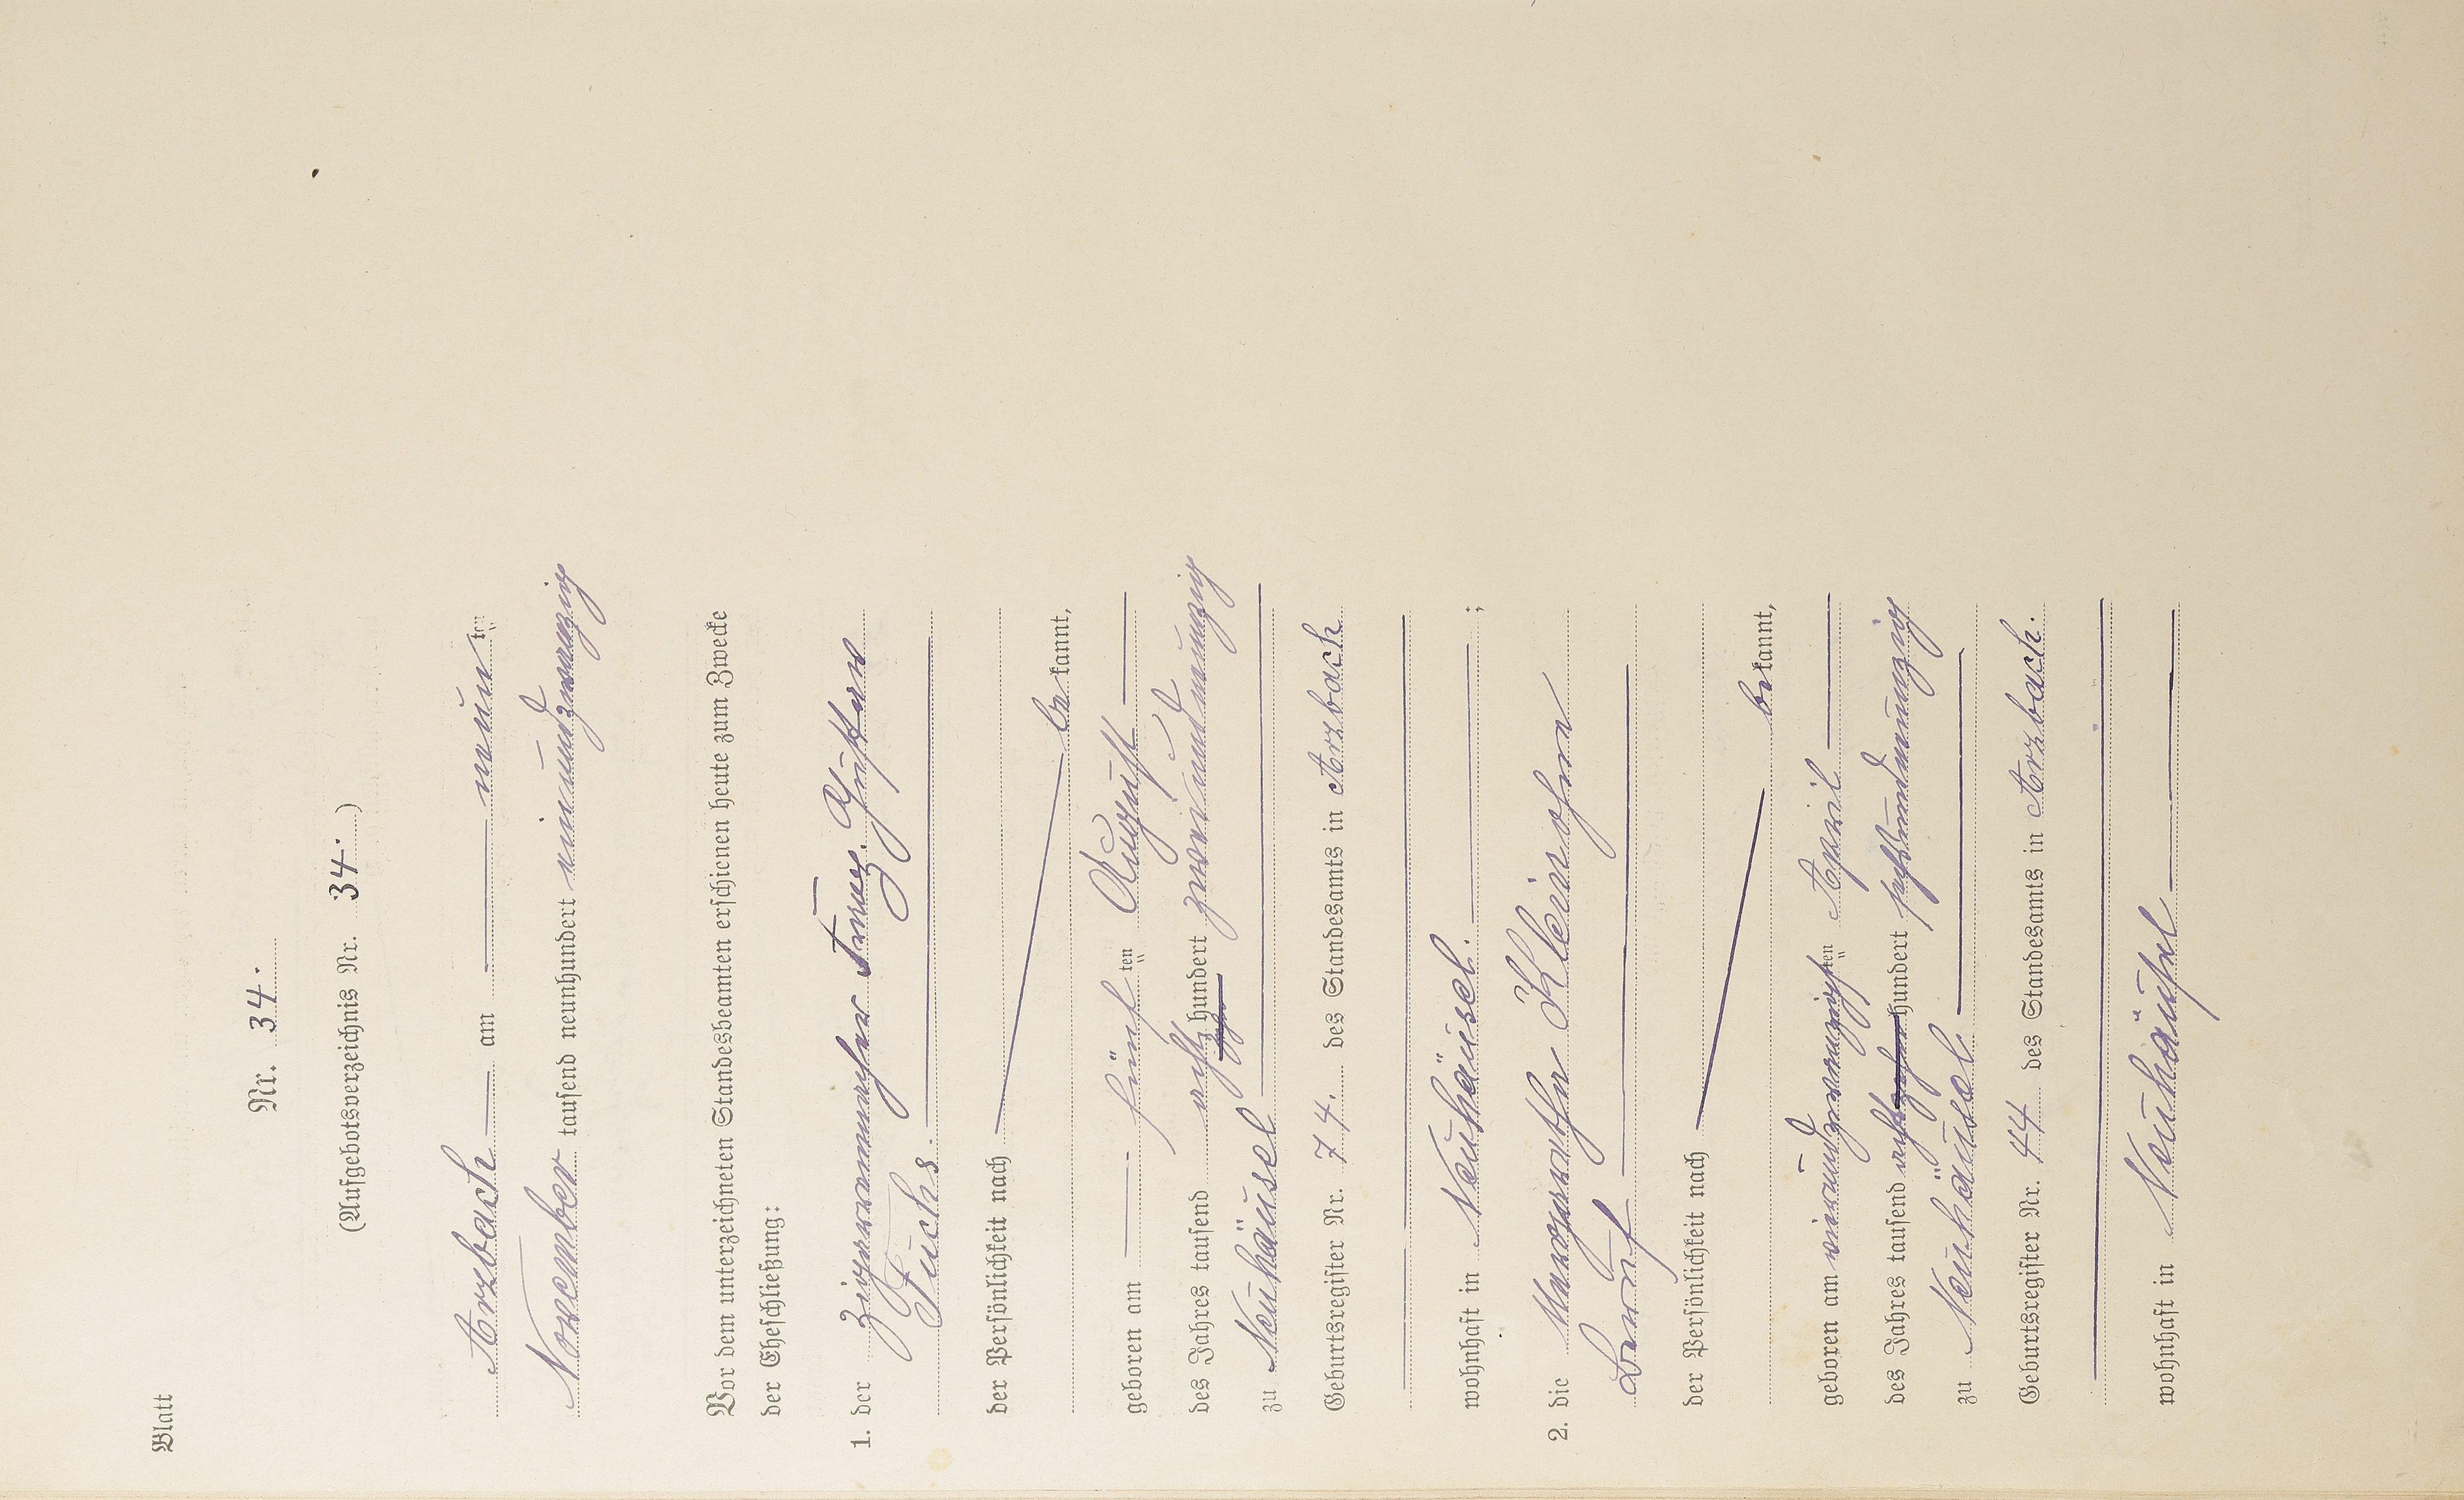 Blatt
Nr. 34.
(Aufgebotsverzeichnis Nr. 34.)
Arzbach am neun ten
November tausend neunhundert einundzwanzig
Vor dem unterzeichneten Standesbeamten erschienen heute zum Zwecke
der Eheschließung:
1. der Zigarrenmacher Franz Gustav
Fuchs.
der Persönlichkeit nach
be kannt,
geboren am fünf ten August
des Jahres tausend acht hundert zweiundneunzig
zu Neuhäusel
Geburtsregister Nr. 74. des Standesamts in Arzbach
wohnhaft in Neuhäusel. ;
2. die Margarethe Klein ohne
Beruf
der Persönlichkeit nach
be kannt,
geboren am vierundzwanzigsten April
des Jahres tausend acht hundert sechsundneunzig
zu Neuhäusel.
Geburtsregister Nr. 44 des Standesamts in Arzbach.
wohnhaft in Neuhäusel